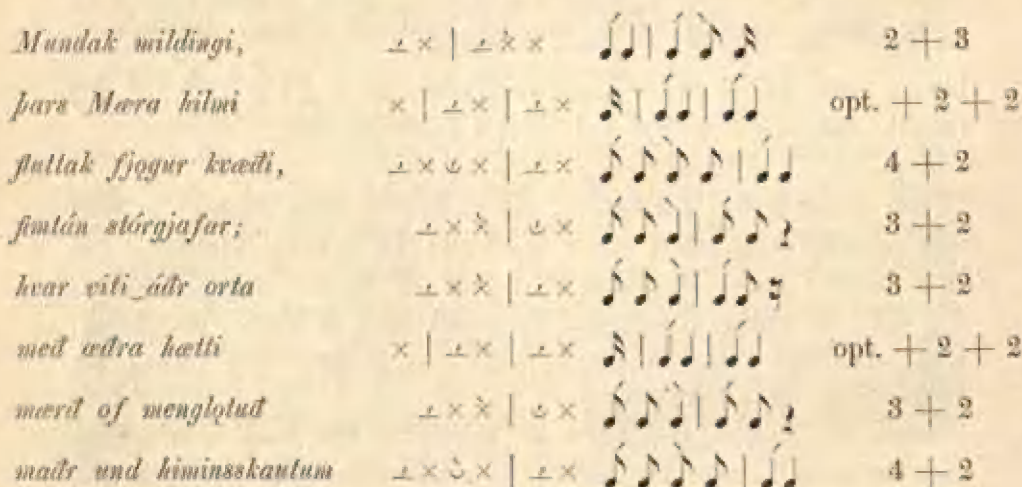 Mundak mildingi, –́ × | –́ ×̀ × 2 + 3
þars Mæra hilmi × | –́ × | –́ × opt. + 2 + 2
fluttak fjǫgur kvæði, –́ × ᴗ̀ × | –́ × 4 + 2
fimtán stórgjafar; –́ × ×̀ | ᴗ́ × 3 + 2
hvar viti‿áðr orta –́ × ×̀ | –́ × 3 + 2
með æðra hætti × | –́ × | –́ × opt. + 2 + 2
mærð of menglǫtuð –́ × ×̀ | ᴗ́ × 3 + 2
maðr und himinsskautum –́ × ᴗ̀ × | –́ × 4 + 2